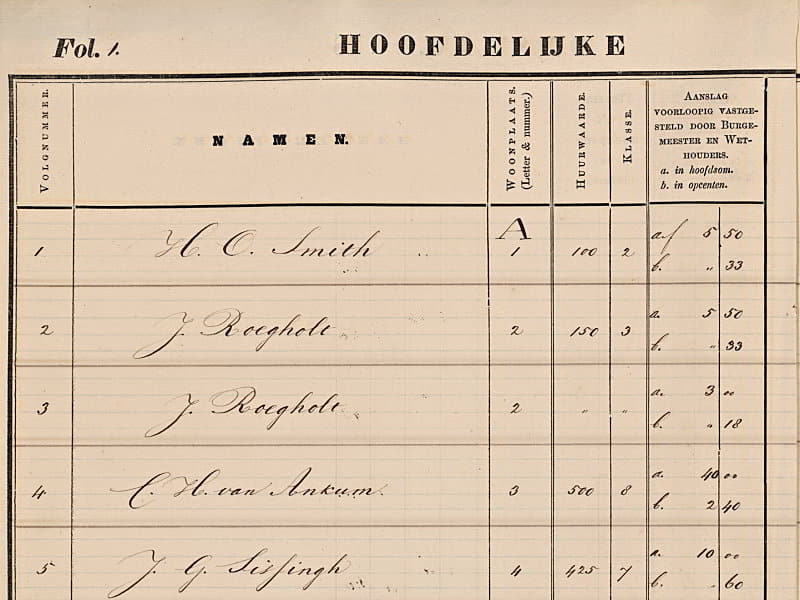 Fol. 1.
HOOFDELIJKE
VOLGNUMMER.
NAMEN.
WOONPLAATS.
(Letter & nummer.)
HUURWAARDE.
KLASSE.
AANSLAG
VOORLOOPIG VASTGE-
STELD DOOR BURGE-
MEESTER EN WET-
HOUDERS.
a. in hoofdsom.
b. in opcenten.
A
1 H. O. Smith 1 100 2 a. f 5 50
b. " 33
2 J. Roegholt 2 150 3 a. 5 50
b. " 33
3 J. Roegholt 2 " " a. 3 "
b. " 18
4 C. H. van Ankum. 3 500 8 a. 40 "
b. 2 40
5 J. G. Sissingh 4 425 7 a. 10 "
b. " 60